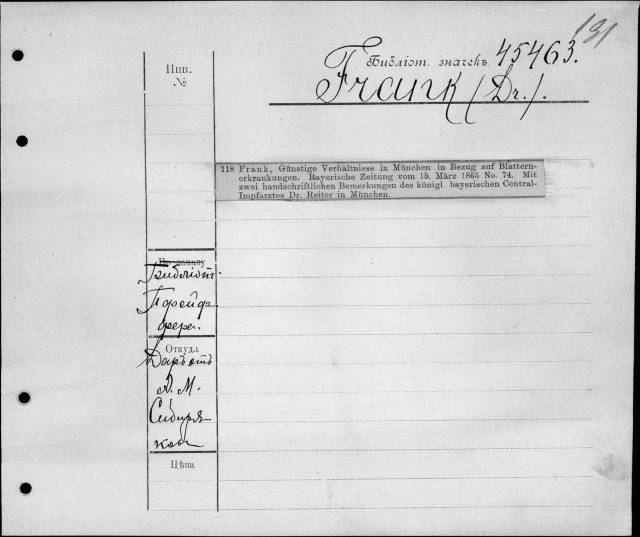 131
Библіот. значекъ 45463.
Frank (Dr.).
Инв.
№
118 Frank, Günstige Verhältnisse in München in Bezug auf Blattern-
erkrankungen. Bayerische Zeitung vom 15. März 1865 No. 74. Mit
zwei handschriftlichen Bemerkungen des königl bayerischen Central-
Impfarztes Dr. Reiter in München.
По заказу
Библіот.
Пфейф-
фера.
Откуда
Даръ отъ
А. М.
Сибиря-
кова
Цѣна